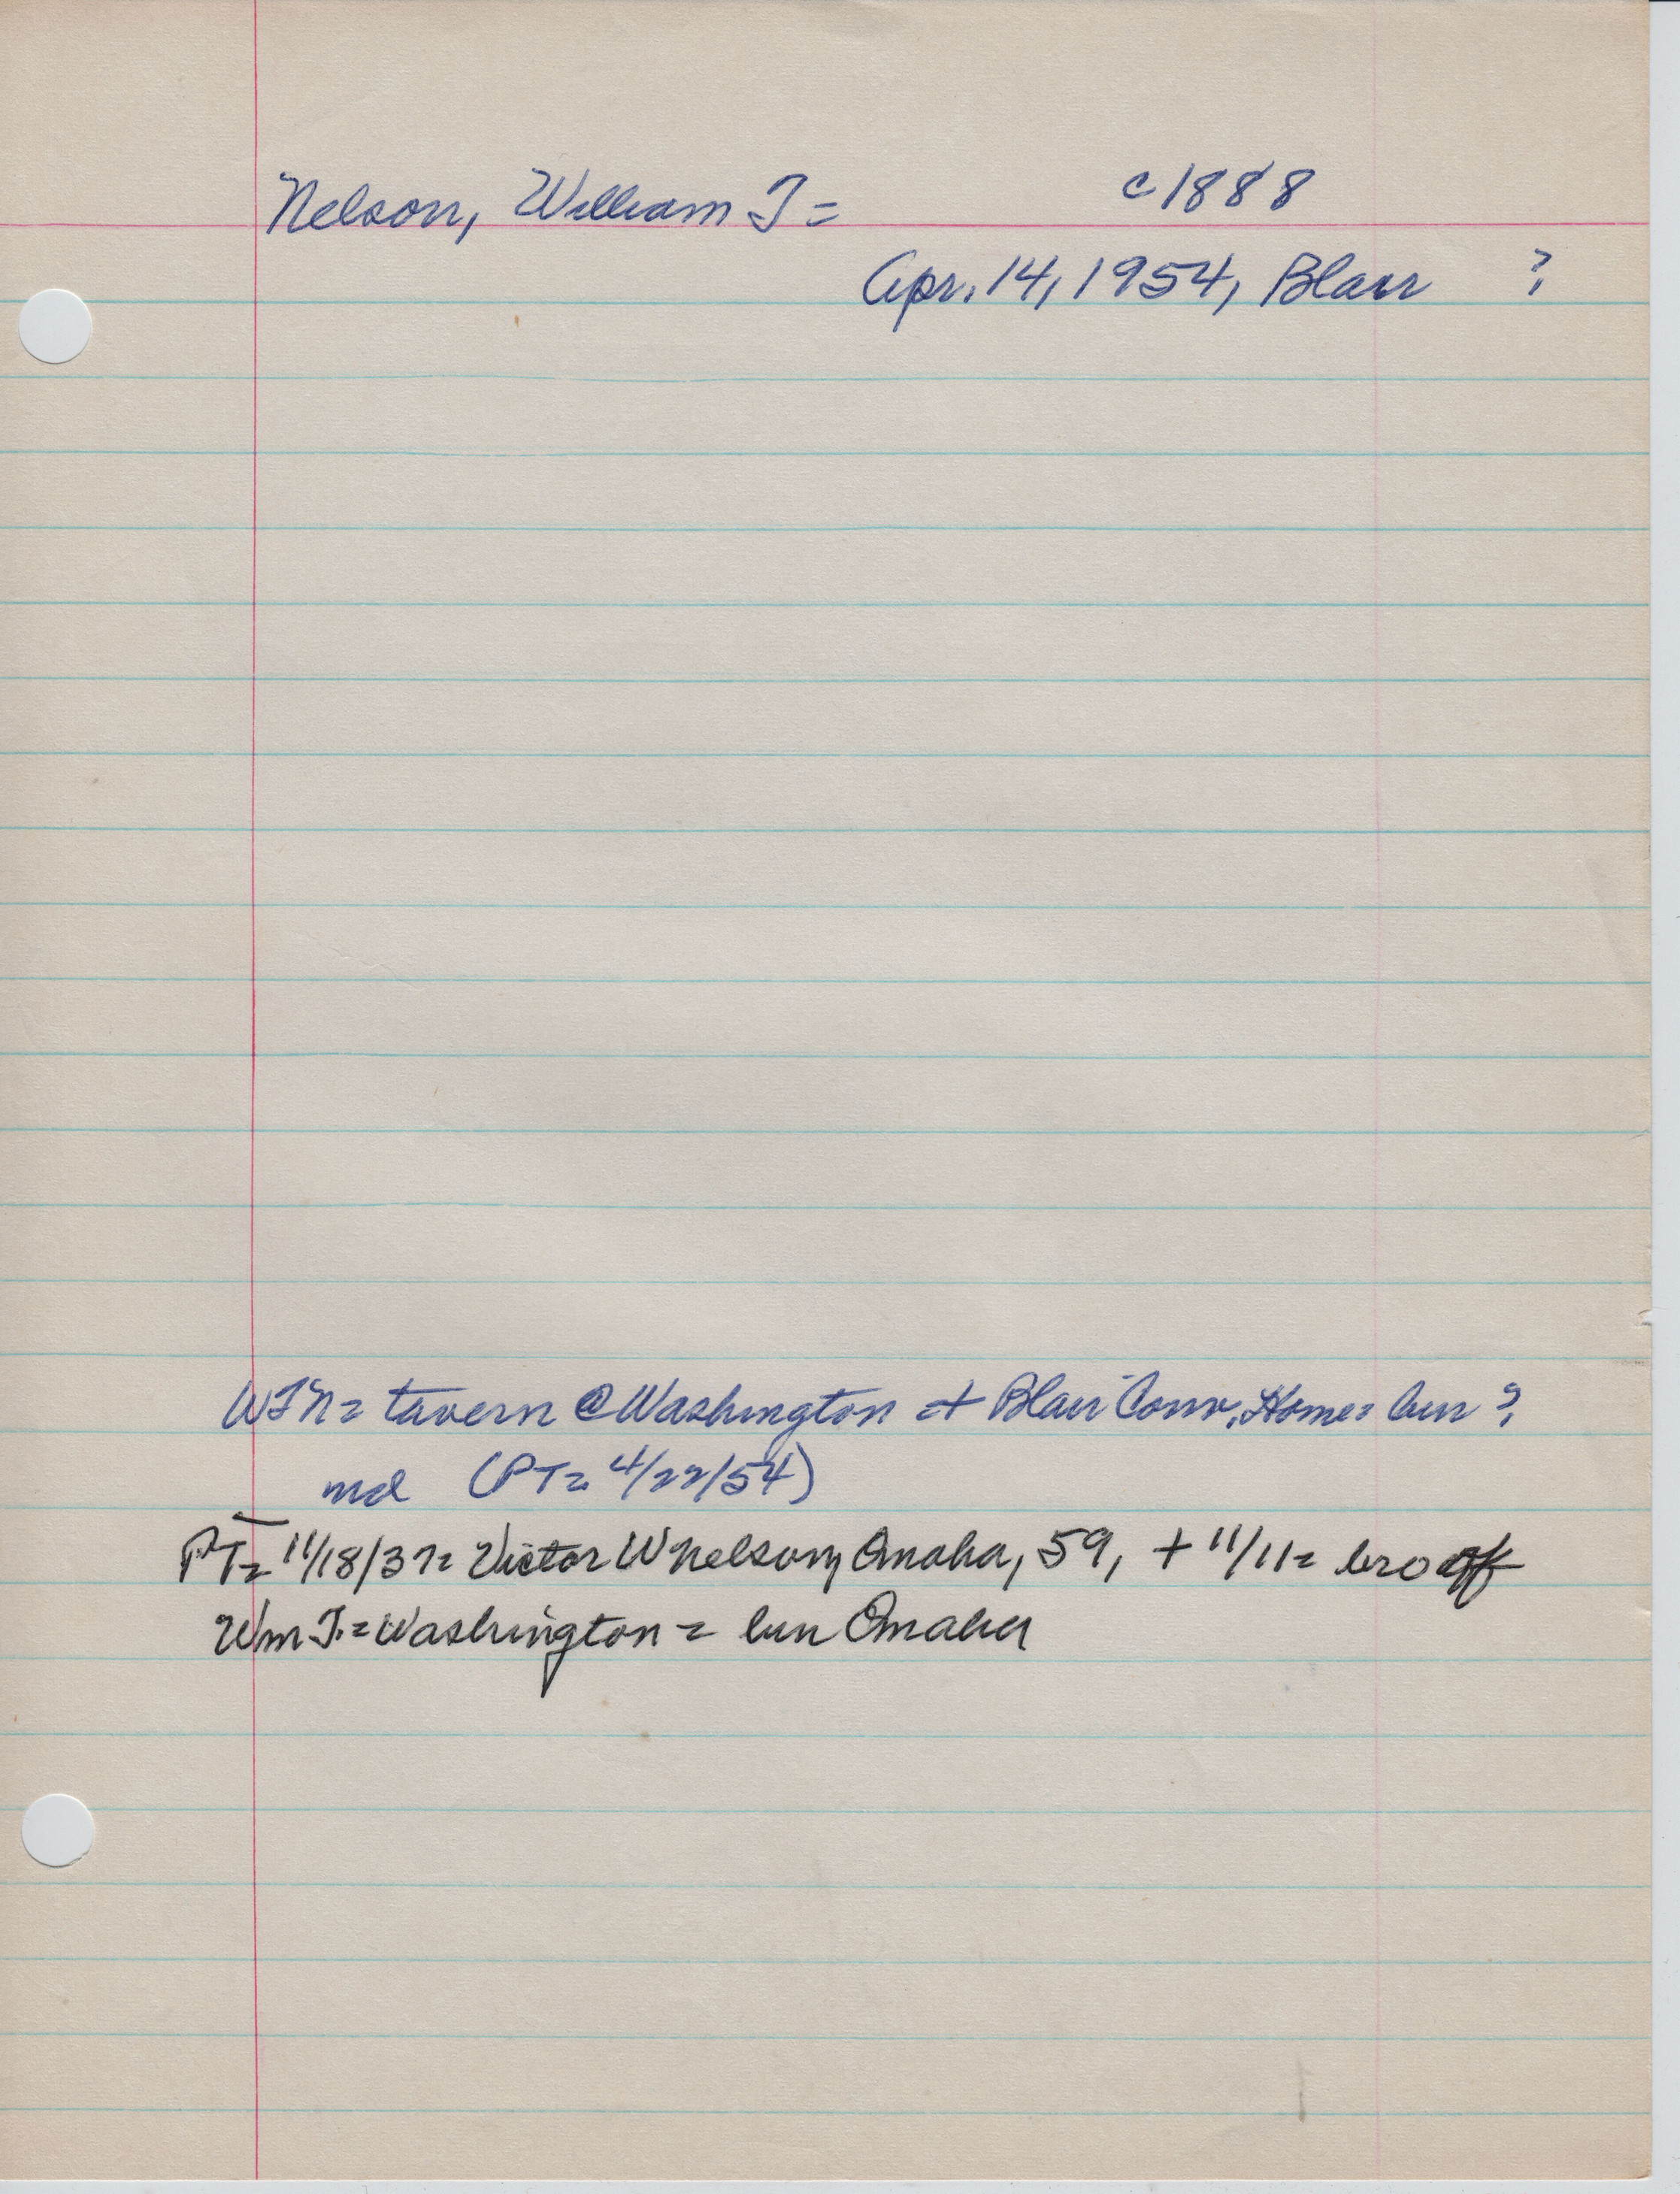 Nelson, William T= c1888
Apr. 14, 1954, Blair ?
WTN= tavern @ Washington + Blair Conv. Home= bur ?
md (PT= 4/22/54)
PT= 11/18/37= Victor W Nelson, Omaha, 59, + 11/11= bro of
Wm T.= Washington = bur Omaha